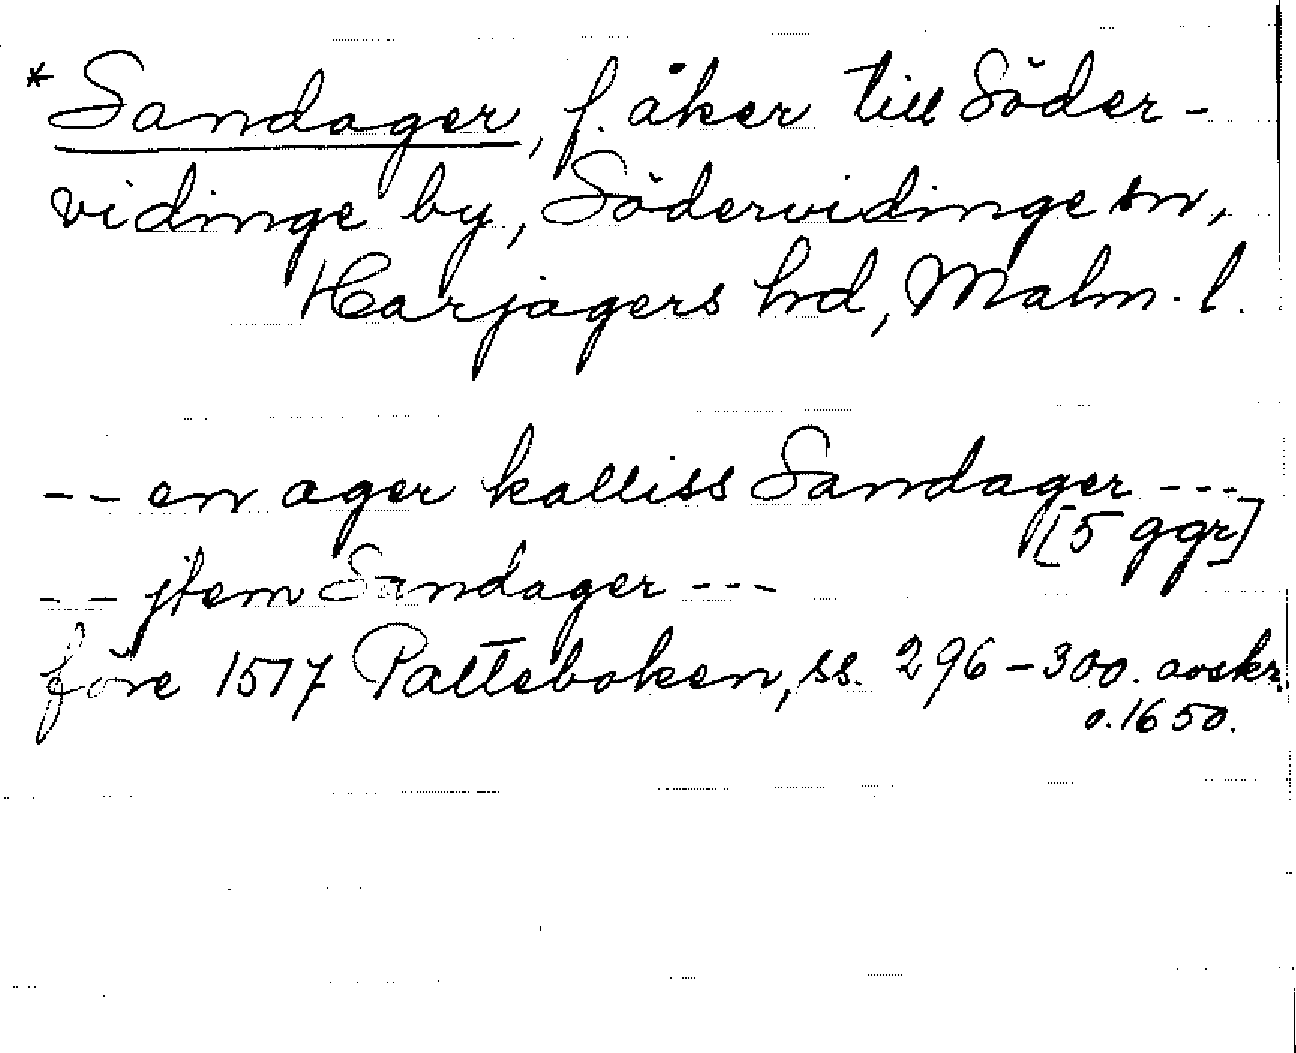 * Sandager, f. åker till Söder-
vidinge by, Södervidinge sn,
Harjagers hd, Malm. l.
-- en ager kalliss Sandager ---
[5 ggr]
-- jtem Sandager ---
före 1517 Palteboken, ss. 296-300. avskr.
o. 1650.